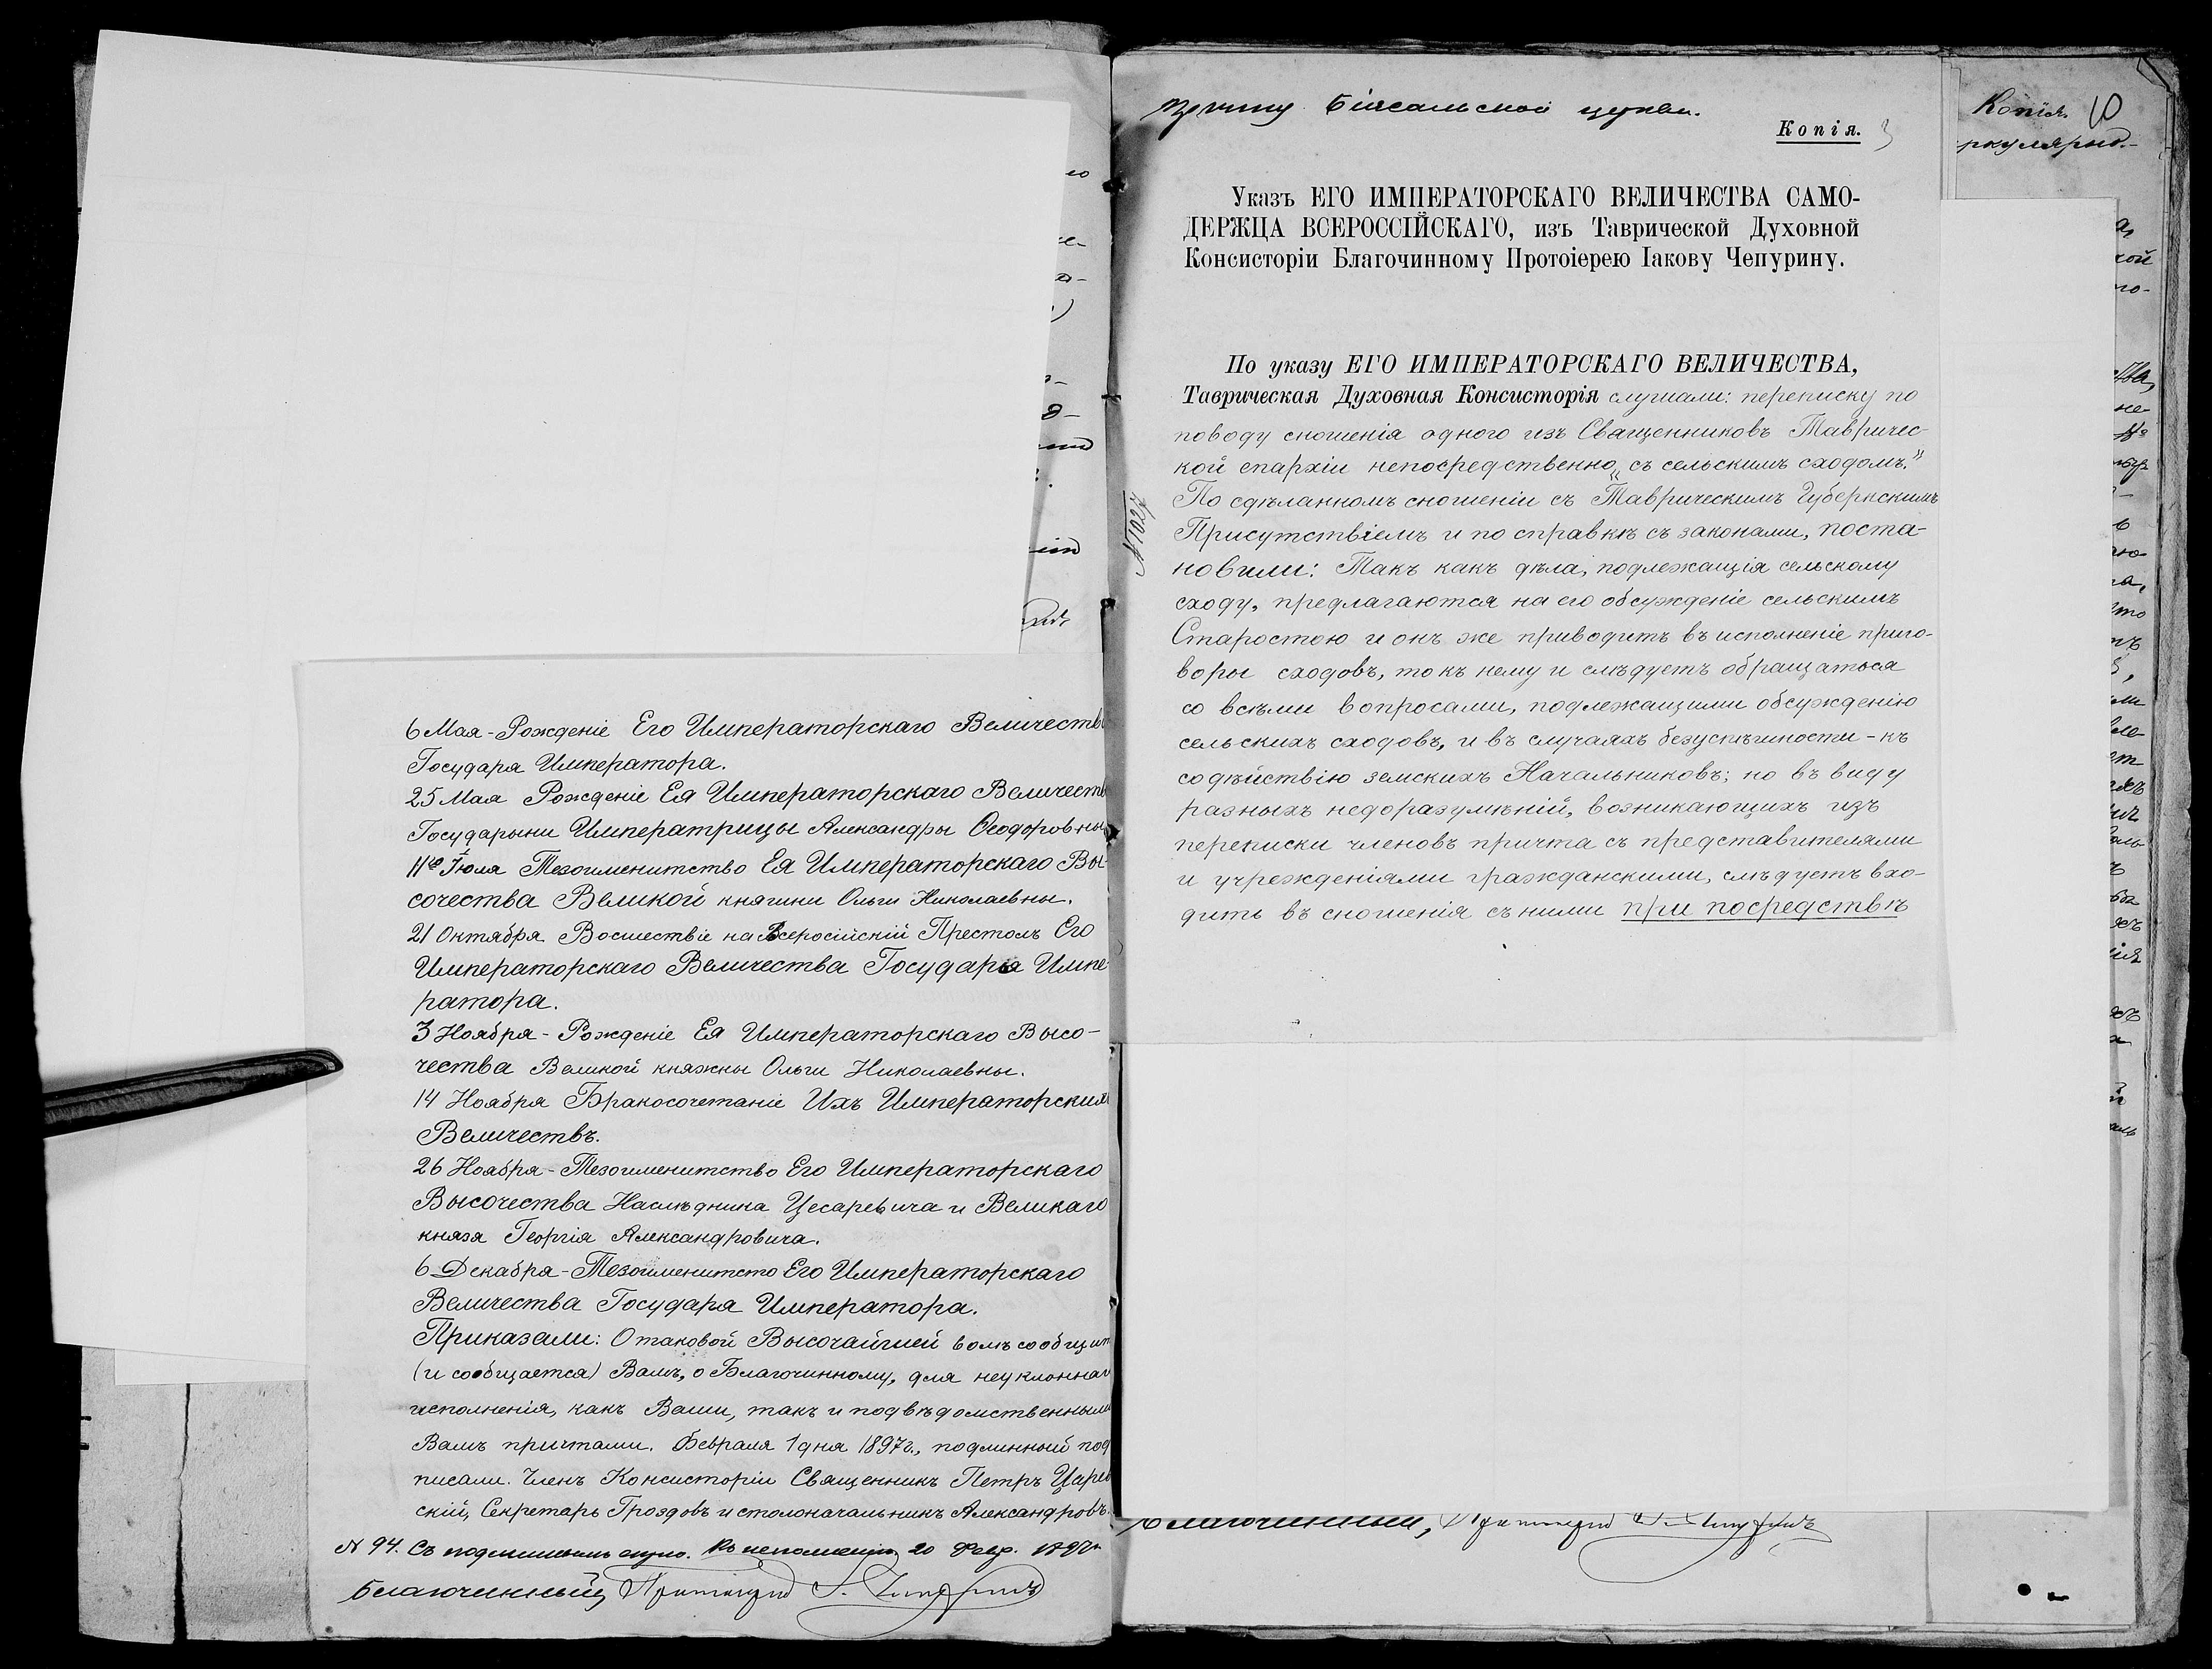 6 Мая - Рожденіе Его Императорскаго Величеств
Государя Императора.
25 Мая Рожденіе Ея Императорскаго Величеств
Государыни Императрицы Александры Ѳеодоровны
11го Іюля Тезоименитство Ея Императорскаго Вы-
сочества Великой княгини Ольги Николаевны.
21 Октября Восшествіе на Всеросійскій Престолъ Его
Императорскаго Величества Государя Импе-
ратора.
3 Ноября - Рожденіе Ея Императорскаго Высо-
чества Великой княжны Ольги Николаевны.
14 Ноября Бракосочетаніе Ихъ Императорских
Величествъ.
26 Ноября - Тезоименитство Его Императорскаго
Высочества Наслѣдника Цесаревича и Великаго
князя Георгія Александровича.
6 Декабря - Тезоименитсто Его Императорскаго
Величества Государя Императора.
Приказали: О таковой Высочайшей волѣ сообщит
(и сообщается) Вамъ, о Благочинному, для неуклоннаг
исполненія, какъ Вами, такъ и подвѣдомственными
Вамъ причтами. Февраля 1 дня 1897 г., подлинный под
писали. Членъ Консисторіи Священникъ Петръ Царев
скій, Секретарь Гроздовъ и столоначальникъ Александровъ.
№ 94. Съ подлиннымъ вѣрно. Къ исполненію 20 Февр. 1897 г.
Благочинный, Протоіерей І. Чепуринъ
Причту Біясальской церкви.
Копія. 3
Указъ ЕГО ИМПЕРАТОРСКАГО ВЕЛИЧЕСТВА САМО-
ДЕРЖЦА ВСЕРОССІЙСКАГО, изъ Таврической Духовной
Консисторіи Благочинному Протоіерею Іакову Чепурину.
По указу ЕГО ИМПЕРАТОРСКАГО ВЕЛИЧЕСТВА,
Таврическая Духовная Консисторія слушали: переписку по
поводу сношенія одного изъ Священниковъ Тавричес-
кой епархіи непосредственно „съ сельскимъ сходомъ."
По сдѣланномъ сношеніи съ Таврическимъ Губернскимъ
Присутствіемъ и по справкѣ съ законами, поста-
новили: Такъ какъ дѣла, подлежащія сельскому
сходу, предлагаются на его обсужденіе сельскимъ
Старостою и онъ же приводитъ въ исполненіе приго-
воры сходовъ, то къ нему и слѣдуетъ обращаться
со всѣми вопросами, подлежащими обсужденію
сельскихъ сходовъ, и въ случаяхъ безуспѣшности - къ
содѣйствію земскихъ Начальниковъ; но въ виду
разныхъ недоразумѣній, возникающихъ изъ
переписки членовъ причта съ представителями
и учрежденіями гражданскими, слѣдуетъ вхо-
дить въ сношенія съ ними при посредствѣ
№ 1027
Благочинный, Протоіерей І. Чепуринъ
Копія. 10
ркулярно.-